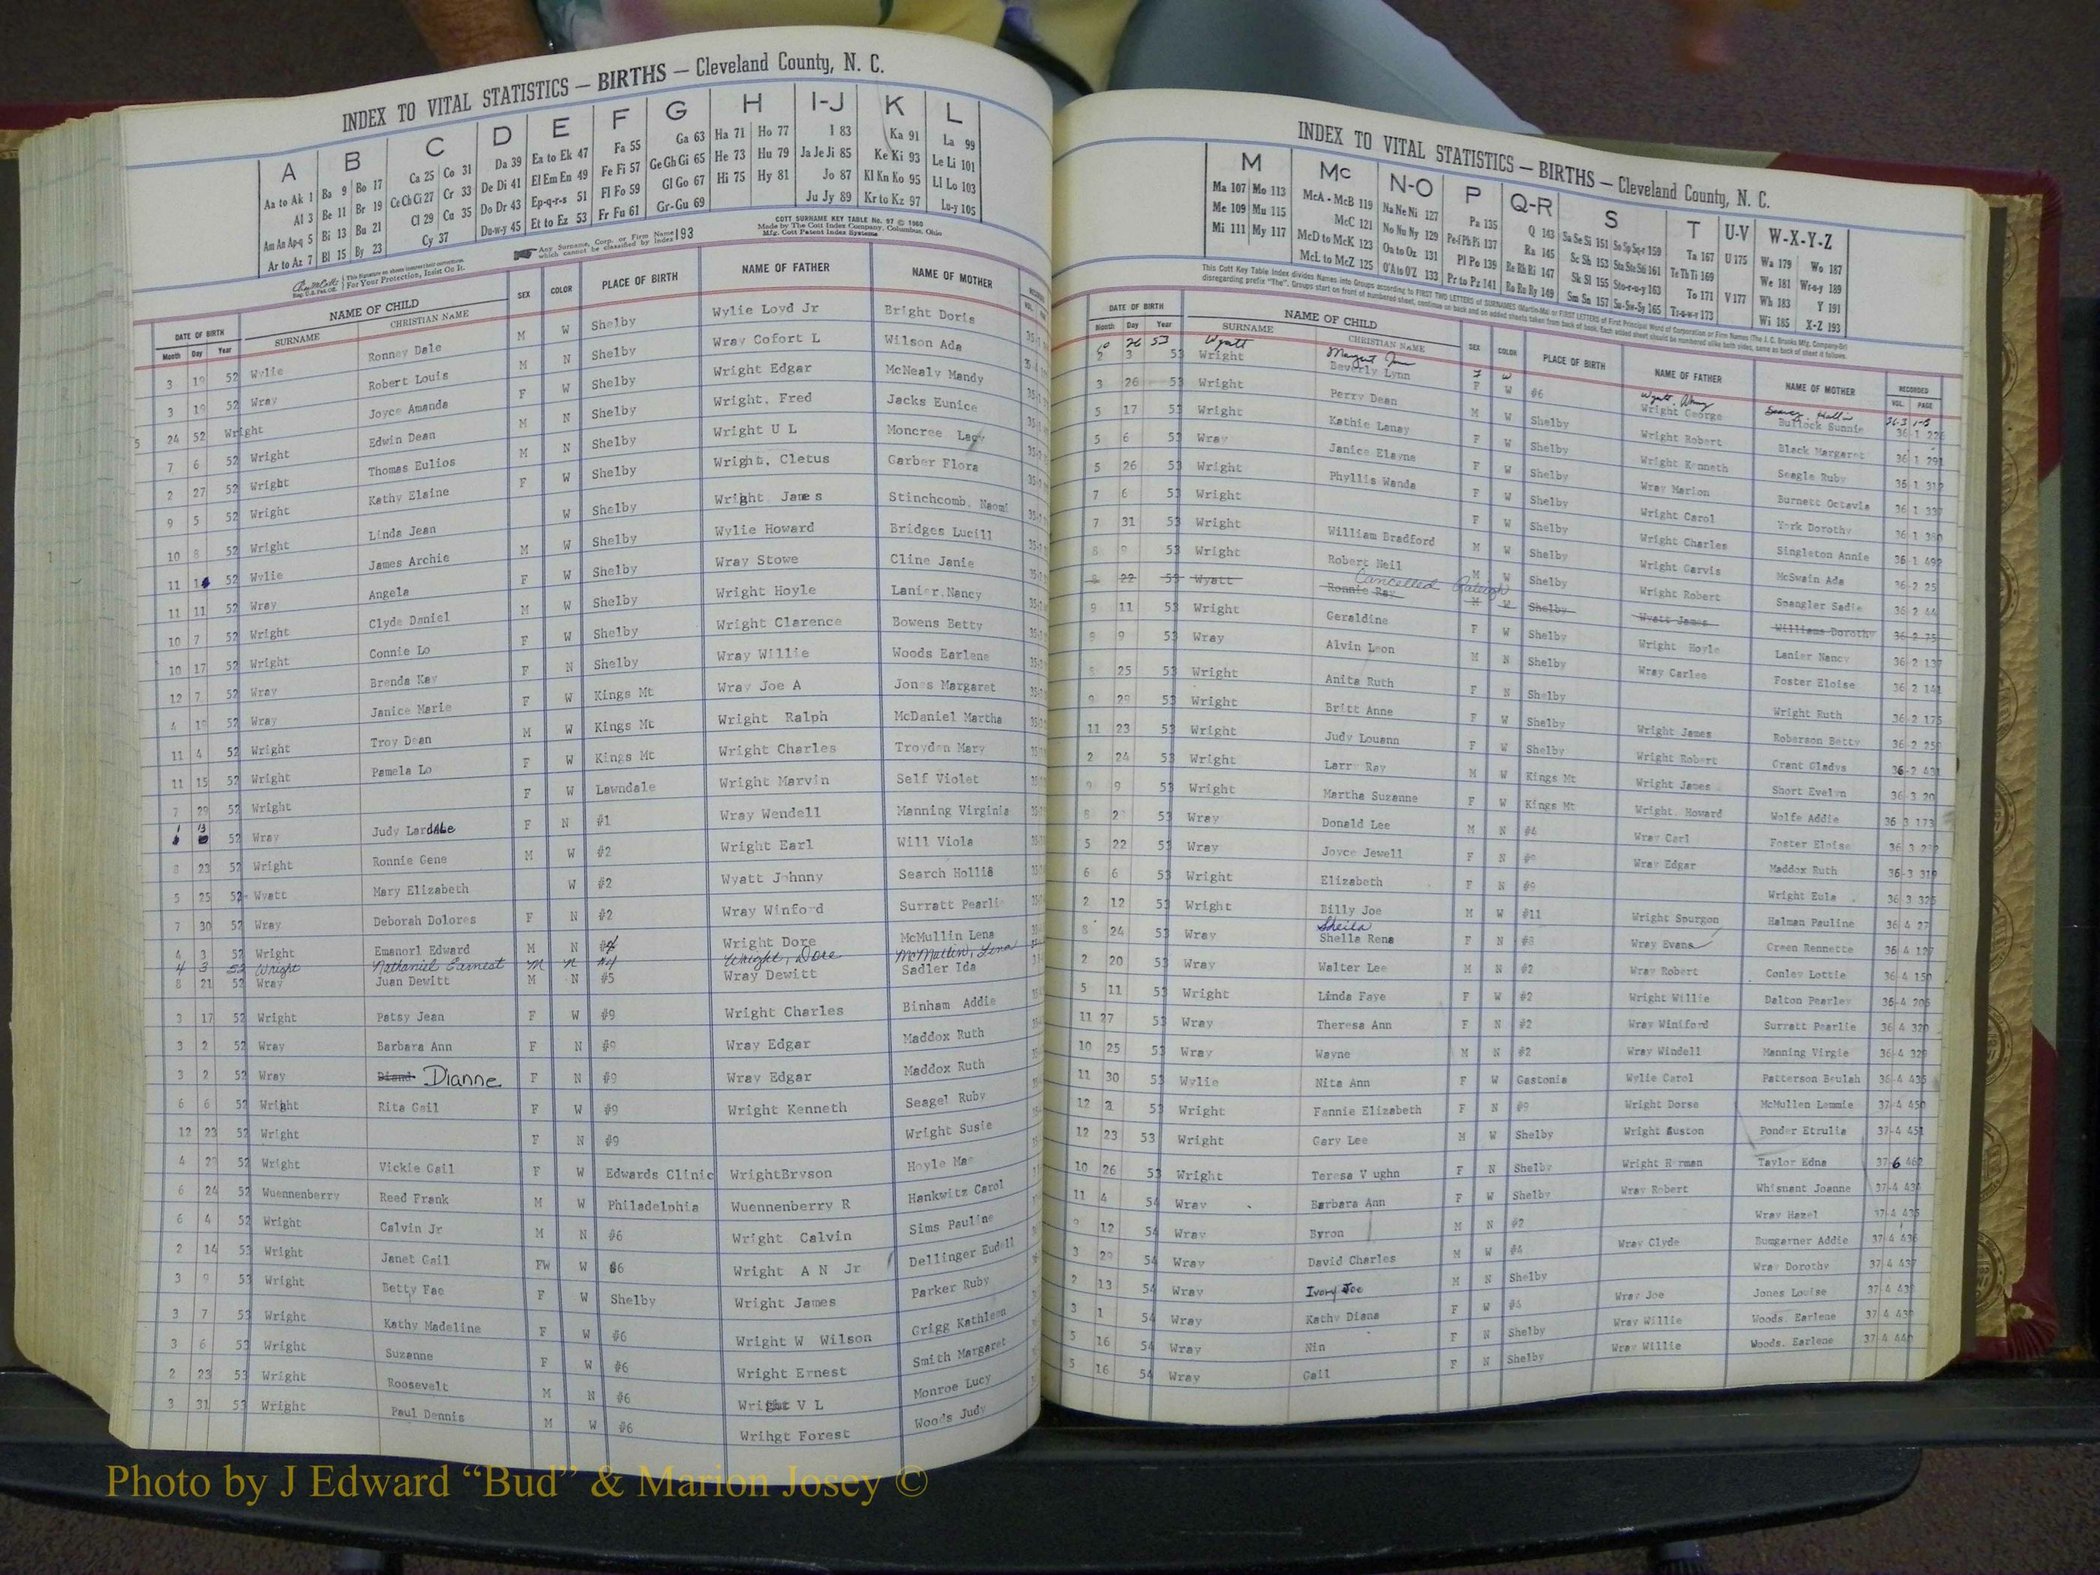 INDEX TO VITAL STATISTICS — BIRTHS — Cleveland County, N. C.
A B C D E F G H I-J K L
Aa to Ak 1 Ba 9 Bo 17 Ca 25 Co 31 Da 39 Ea to Ek 47 Fa 55 Ga 63 Ha 71 Ho 77 I 83 Ka 91 La 99
Al 3 Be 11 Br 19 Ce Ch Ci 27 Cr 33 De Di 41 El Em En 49 Fe Fi 57 Ge Gh Gi 65 He 73 Hu 79 Ja Je Ji 85 Ke Ki 93 Le Li 101
Am An Ap-q 5 Bi 13 Bu 21 Cl 29 Cu 35 Do Dr 43 Ep-q-r-s 51 Fl Fo 59 Gl Go 67 Hi 75 Hy 81 Jo 87 Kl Kn Ko 95 Ll Lo 103
Ar to Az 7 Bl 15 By 23 Cy 37 Du-w-y 45 Et to Ez 53 Fr Fu 61 Gr-Gu 69 Ju Jy 89 Kr to Kz 97 Lu-y 105
Any Surname, Corp. or Firm Name which cannot be classified by Index 193
COTT SURNAME KEY TABLE No. 97 © 1960
Made by The Cott Index Company, Columbus, Ohio
Mfg. Cott Patent Index Systems
This Signature on sheets insures their correctness.
For Your Protection, Insist On It.
DATE OF BIRTH NAME OF CHILD SEX COLOR PLACE OF BIRTH NAME OF FATHER NAME OF MOTHER
Month Day Year SURNAME CHRISTIAN NAME
3 19 52 Wylie Ronney Dale M W Shelby Wylie Loyd Jr Bright Doris
3 19 52 Wray Robert Louis M N Shelby Wray Cofort L Wilson Ada
5 24 52 Wright Joyce Amanda F W Shelby Wright Edgar McNealy Mandy
7 6 52 Wright Edwin Dean M N Shelby Wright, Fred Jacks Eunice
2 27 52 Wright Thomas Eulios M N Shelby Wright U L Moncree Lacy
9 5 52 Wright Kathy Elaine F W Shelby Wright, Cletus Garber Flora
10 8 52 Wright Linda Jean W Shelby Wright James Stinchcomb, Naomi
11 14 52 Wylie James Archie M W Shelby Wylie Howard Bridges Lucill
11 11 52 Wray Angela F W Shelby Wray Stowe Cline Janie
10 7 52 Wright Clyde Daniel M W Shelby Wright Hoyle Lanier,Nancy
10 17 52 Wright Connie Lo F W Shelby Wright Clarence Bowens Betty
12 7 52 Wray Brenda Kay F N Shelby Wray Willie Woods Earlene
4 19 52 Wray Janice Marie F W Kings Mt Wray Joe A Jones Margaret
11 4 52 Wright Troy Dean M W Kings Mt Wright Ralph McDaniel Martha
11 15 52 Wright Pamela Lo F W Kings Mt Wright Charles Troydan Mary
7 29 52 Wright F W Lawndale Wright Marvin Self Violet
1 13 52 Wray Judy Lardale F N #1 Wray Wendell Manning Virginia
8 23 52 Wright Ronnie Gene M W #2 Wright Earl Will Viola
5 25 52 Wyatt Mary Elizabeth W #2 Wyatt Johnny Search Hollie
7 30 52 Wray Deborah Dolores F N #2 Wray Winford Surratt Pearlie
4 3 52 Wright Emanorl Edward M N #4 Wright Dore McMullin Lena
4 3 52 Wright Nathaniel Earnest M N #4 Wright, Dore McMullin, Lena
8 21 52 Wray Juan Dewitt M N #5 Wray Dewitt Sadler Ida
3 17 52 Wright Patsy Jean F W #9 Wright Charles Binham Addie
3 2 52 Wray Barbara Ann F N #9 Wray Edgar Maddox Ruth
3 2 52 Wray Diand Dianne F N #9 Wray Edgar Maddox Ruth
6 6 52 Wright Rita Gail F W #9 Wright Kenneth Seagel Ruby
12 23 52 Wright F N #9 Wright Susie
4 29 52 Wright Vickie Gail F W Edwards Clinic WrightBryson Hoyle Mae
6 24 52 Wuennenberry Reed Frank M W Philadelphia Wuennenberry R Hankwitz Carol
6 4 52 Wright Calvin Jr M N #6 Wright Calvin Sims Pauline
2 14 53 Wright Janet Gail FW W #6 Wright A N Jr Dellinger Eudell
3 9 53 Wright Betty Fae F W Shelby Wright James Parker Ruby
3 7 53 Wright Kathy Madeline F W #6 Wright W Wilson Grigg Kathleen
3 6 53 Wright Suzanne F W #6 Wright Ernest Smith Margaret
2 23 53 Wright Roosevelt M N #6 Wright V L Monroe Lucy
3 31 53 Wright Paul Dennis M W #6 Wrihgt Forest Woods Judy
INDEX TO VITAL STATISTICS — BIRTHS — Cleveland County, N. C.
M Mc N-O P Q-R S T U-V W-X-Y-Z
Ma 107 Mo 113 McA - McB 119 Na Ne Ni 127 Pa 135 Q 143 Sa Se Si 151 So Sp Sq-r 159 Ta 167 U 175 Wa 179 Wo 187
Me 109 Mu 115 McC 121 No Nu Ny 129 Pe-f Ph Pi 137 Ra 145 Sc Sh 153 Sta Ste Sti 161 Te Th Ti 169 We 181 Wr-u-y 189
Mi 111 My 117 McD to McK 123 Oa to Oz 131 Pl Po 139 Re Rh Ri 147 Sk Sl 155 Sto-r-u-y 163 To 171 V 177 Wh 183 Y 191
McL to McZ 125 O'A to O'Z 133 Pr to Pz 141 Ro Ru Ry 149 Sm Sn 157 Su-Sw-Sy 165 Tr-u-w-y 173 Wi 185 X-Z 193
This Cott Key Table Index divides Names into Groups according to FIRST TWO LETTERS of SURNAMES (Martin-Ma) or FIRST LETTERS of First Principal Word of Corporation or Firm Names (The J. C. Brooks Mfg. Company-Br)
disregarding prefix "The". Groups start on front of numbered sheet, continue on back and on added sheets taken from back of book. Each added sheet should be numbered alike both sides, same as back of sheet it follows.
DATE OF BIRTH NAME OF CHILD SEX COLOR PLACE OF BIRTH NAME OF FATHER NAME OF MOTHER RECORDED
Month Day Year SURNAME CHRISTIAN NAME VOL. PAGE
10 26 53 Wyatt Margaret F W Wyatt,
2 3 53 Wright Beverly Lynn F W #6 Wright George Bullock Sunnie 36 1 226
3 26 53 Wright Perry Dean M W Shelby Wright Robert Black Margaret 36 1 291
5 17 53 Wright Kathie Lanay F W Shelby Wright Kenneth Seagle Ruby 36 1 312
5 6 53 Wray Janice Elayne F W Shelby Wray Marion Burnett Octavia 36 1 337
5 26 53 Wright Phyllis Wanda F W Shelby Wright Carol York Dorothy 36 1 380
7 6 53 Wright F W Shelby Wright Charles Singleton Annie 36 1 492
7 31 53 Wright William Bradford M W Shelby Wright Garvis McSwain Ada 36 2 25
8 9 53 Wright Robert Neil M W Shelby Wright Robert Spangler Sadie 36 2 44
8 22 53 Wyatt Ronnie Ray Cancelled Raleigh M W Shelby Wyatt James Williams Dorothy 36 2 75
9 11 53 Wright Geraldine F W Shelby Wright Hoyle Lanier Nancy 36 2 137
9 9 53 Wray Alvin Leon M N Shelby Wray Carlee Foster Eloise 36 2 141
25 53 Wright Anita Ruth F N Shelby Wright Ruth 36 2 175
9 29 53 Wright Britt Anne F W Shelby Wright James Roberson Betty 36 2 259
11 23 53 Wright Judy Louann F W Shelby Wright Robert Grant Gladys 36-2 431
2 24 53 Wright Larry Ray M W Kings Mt Wright James Short Evelyn 36 3 20
9 53 Wright Martha Suzanne F W Kings Mt Wright. Howard Wolfe Addie 36 3 173
53 Wray Donald Lee M N #4 Wray Carl Foster Eloise 36 3
5 22 53 Wray Joyce Jewell F N #9 Wray Edgar Maddox Ruth 36-3 319
6 6 53 Wright Elizabeth F N #9 Wright Eula 36 3 325
2 12 53 Wright Billy Joe M W #11 Wright Spurgon Halman Pauline 36 4 27
8 24 53 Wray Sheila Shella Rena F N #3 Wray Evans Green Rennette 36 4 127
2 20 53 Wray Walter Lee M N #2 Wray Robert Conley Lottie 36 4 150
5 11 53 Wright Linda Faye F W #2 Wright Willie Dalton Pearley 36-4 206
11 27 53 Wray Theresa Ann F N #2 Wray Winiford Surratt Pearlie 36 4 320
10 25 53 Wray Wayne M N #2 Wray Windell Manning Virgie 36-4 329
11 30 53 Wylie Nita Ann F W Gastonia Wylie Carol Patterson Beulah 36-4 435
12 2 53 Wright Fannie Elizabeth F N #9 Wright Dorse McMullen Lemmie 37-4 450
12 23 53 Wright Gary Lee M W Shelby Wright Euston Ponder Etrulia 37-4 451
10 26 53 Wright Teresa V ughn F N Shelby Wright Herman Taylor Edna 37 6 462
11 4 54 Wray Barbara Ann F W Shelby Wray Robert Whisnant Joanne 37-4 434
12 54 Wray Byron M N #2 Wray Hazel 37 4 435
3 29 54 Wray David Charles M W #4 Wray Clyde Bumgarner Addie 37 4 436
2 13 54 Wray Ivory Joe M N Shelby Wray Dorothy 37 4 437
3 1 54 Wray Kathy Diana F W #4 Wray Joe Jones Louise 37 4 438
5 16 54 Wray Nin F N Shelby Wray Willie Woods. Earlene 37 4 439
5 16 54 Wray Gail F N Shelby Wray Willie Woods. Earlene 37 4 440
Photo by J Edward “Bud” & Marion Josey ©